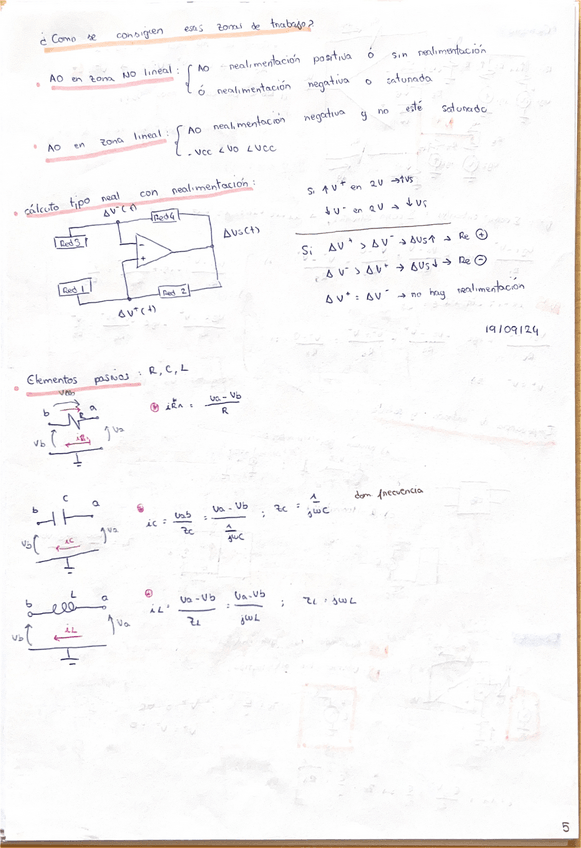 ¿Como se consiguen esas zonas de trabajo?
• AO en zona NO lineal: { AO realimentación positiva ó sin realimentación
ó realimentación negativa o saturada
• AO en zona lineal: { AO realimentación negativa y no esté saturado
- Vcc < Vo < Vcc
• cálculo tipo real con realimentación:
ΔV⁻(t)
Red 4
Red 3
ΔVs(t)
-
+
Red 1
Red 2
ΔV⁺(t)
Si ↑V⁺ en 2V → ↑Vs
↓V⁻ en 2V → ↓Vs
Si ΔV⁺ > ΔV⁻ → ΔVs↑ → Re ⊕
ΔV⁻ > ΔV⁺ → ΔVs↓ → Re ⊖
ΔV⁺ = ΔV⁻ → no hay realimentación
19/09/24
• Elementos pasivos: R, C, L
b R a
Vb iR Va
= (Va - Vb) / R
C
b a
Vb iC Va
iC = Vab / Zc = (Va - Vb) / (1 / jωC) ; Zc = 1 / jωC dom frecuencia
L
b a
Vb iL Va
iL = (Va - Vb) / ZL = (Va - Vb) / jωL ; ZL = jωL
5